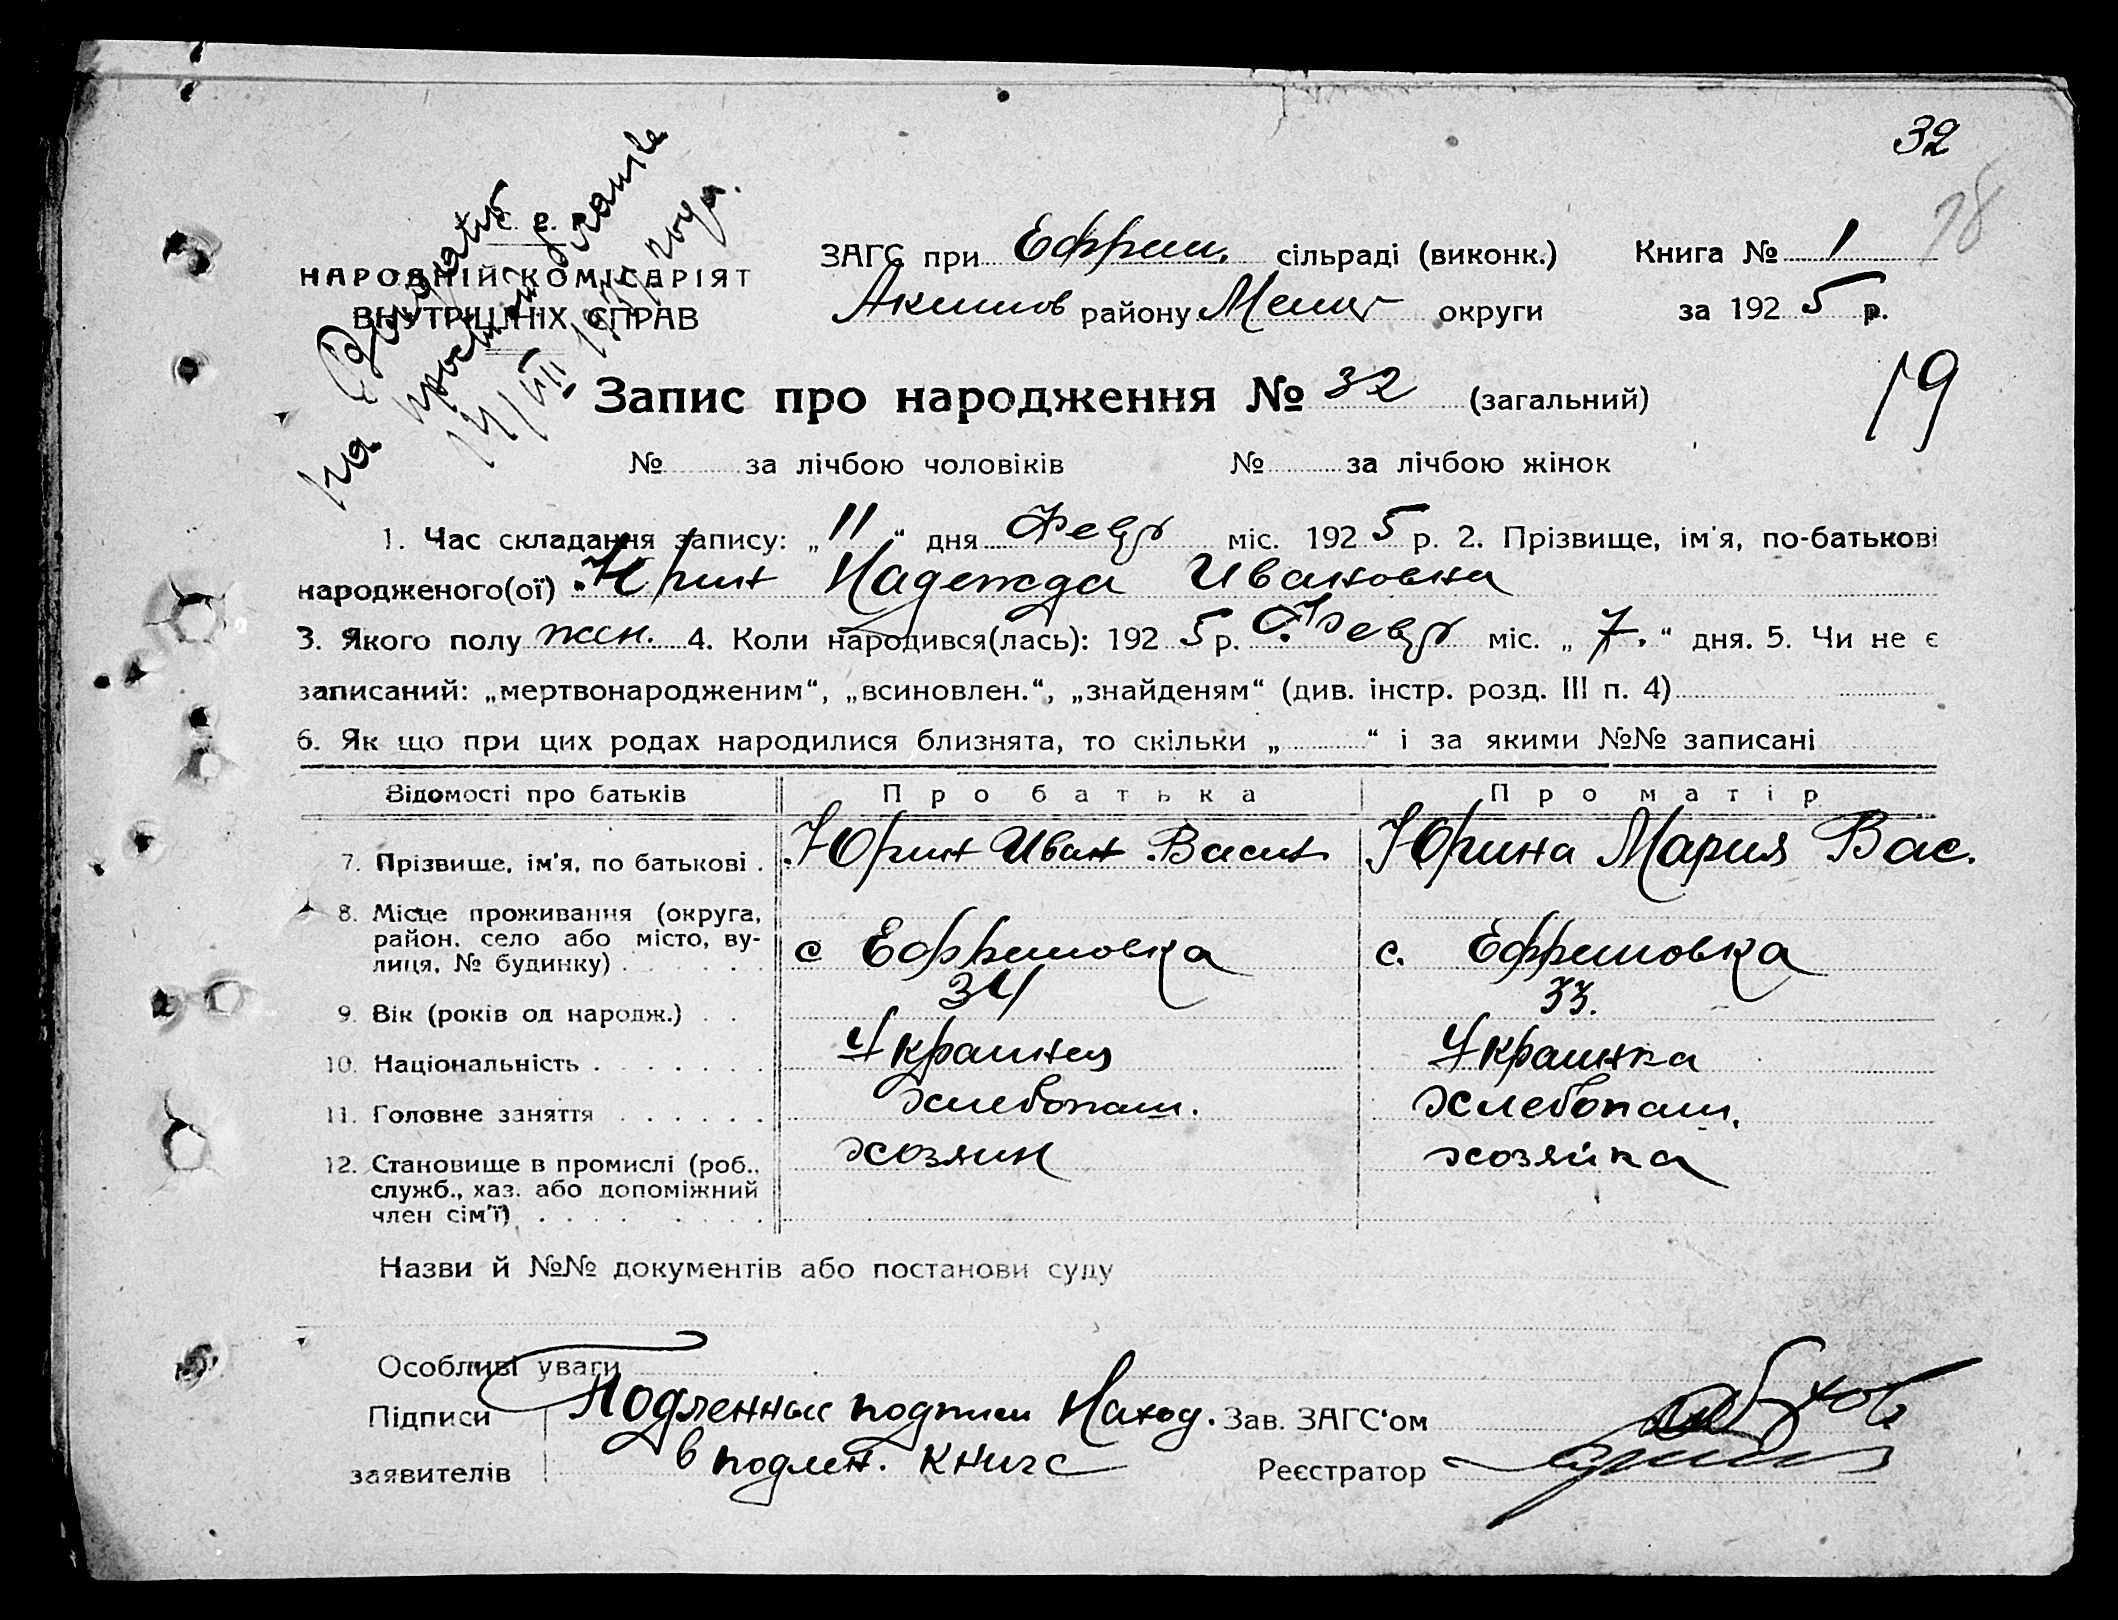 32
78
С. Р.
НАРОДНІЙ КОМІСАРІЯТ
ВНУТРІШНІХ СПРАВ
на
простом бланке
ЗАГС при Ефрем. сільраді (виконк.) Книга № 1
Акимов району Мелит округи за 1925 р.
19
Запис про народження № 32 (загальний)
№ за лічбою чоловіків № за лічбою жінок
1. Час складання запису: „11“ дня Февр міс. 1925 р. 2. Прізвище, ім'я, по-батькові
народженого(ої) Юрин Надежда Ивановна
3. Якого полу жен. 4. Коли народився(лась): 1925 р. Февр міс. „7.“ дня. 5. Чи не є
записаний: „мертвонародженим“, „всиновлен.“, „знайденям“ (див. інстр. розд. III п. 4)
6. Як що при цих родах народилися близнята, то скільки „ “ і за якими №№ записані
Відомості про батьків Про батька Про матір
7. Прізвище, ім'я, по батькові . Юрин Иван Васил Юрина Мария Вас.
8. Місце проживання (округа,
район, село або місто, ву-
лиця, № будинку) . с Ефремовка с. Ефремовка
9. Вік (років од народж.) . . 34 33.
10. Національність . Украинец Украинка
11. Головне заняття . Хлебопаш. Хлебопаш.
12. Становище в промислі (роб.,
служб., хаз. або допоміжний
член сім'ї) . хозяин хозяйка
Назви й №№ документів або постанови суду
Особливі уваги
Підписи Подленные подписи Наход. Зав. ЗАГС'ом
заявителів в подлен. книге Реєстратор